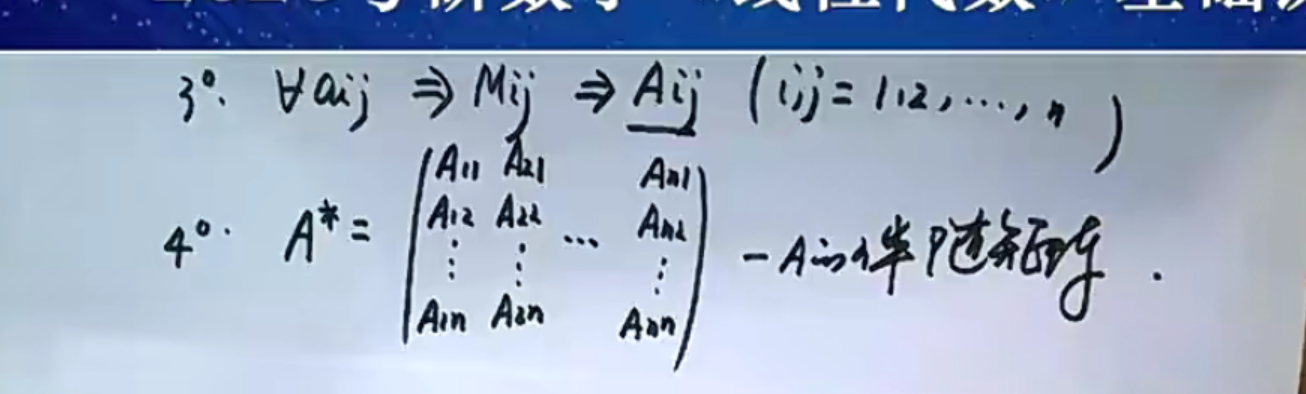 线性代数
3°. ∀aij ⇒ Mij ⇒ Aij (i,j=1,2,…,n)
4°. A* = (A11 A21 … An1
A12 A22 … An2
⋮ ⋮ ⋮
A1n A2n Ann) — A的伴随矩阵.